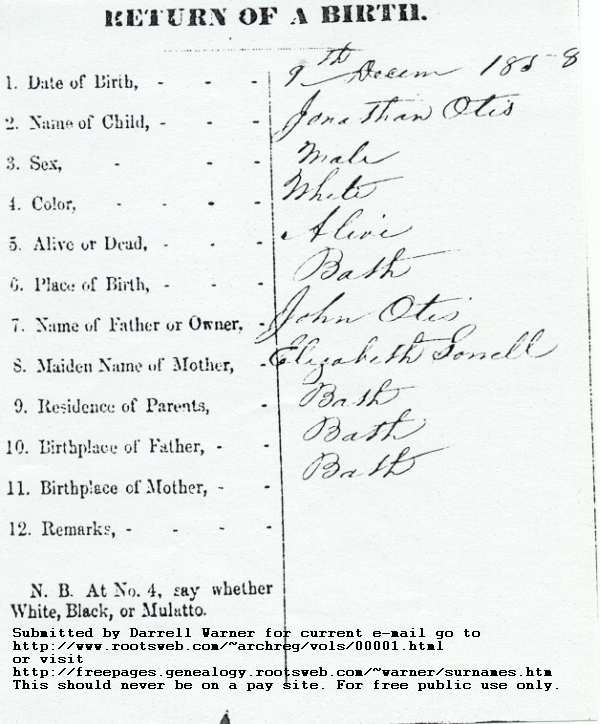 RETURN OF A BIRTH.
1. Date of Birth, - - - 9th Decem 1858
2. Name of Child, - - - Jonathan Otis
3. Sex, - - - Male
4. Color, - - - - White
5. Alive or Dead, - - - Alive
6. Place of Birth, - - - Bath
7. Name of Father or Owner, - John Otis
8. Maiden Name of Mother, - Elizabeth
9. Residence of Parents, - Bath
10. Birthplace of Father, - - Bath
11. Birthplace of Mother, - - Bath
12. Remarks, - - - -
N. B. At No. 4, say whether
White, Black, or Mulatto.
Submitted by Darrell Warner for current e-mail go to
http://www.rootsweb.com/~archreg/vols/00001.html
or visit
http://freepages.genealogy.rootsweb.com/~warner/surnames.htm
This should never be on a pay site. For free public use only.